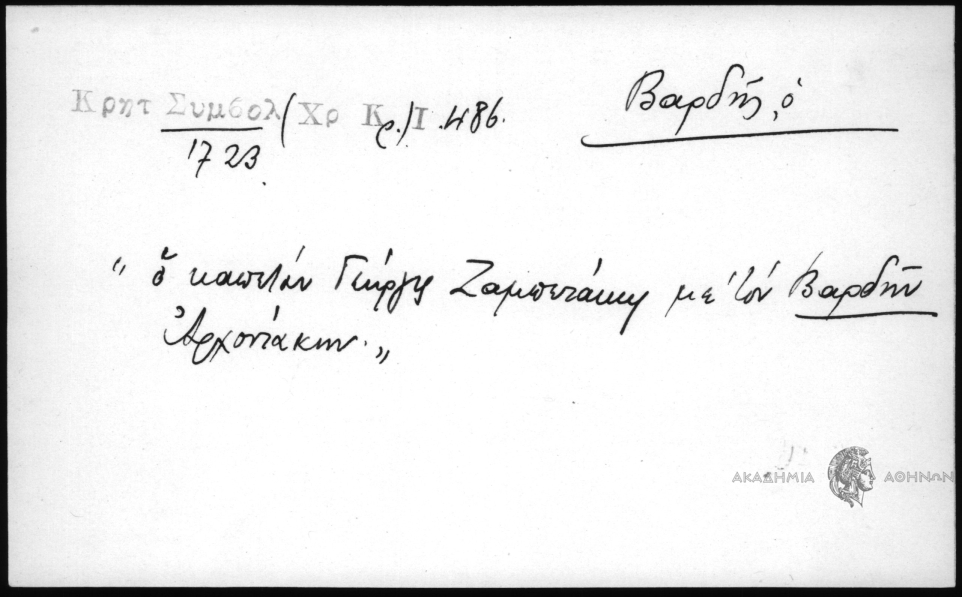 Κρητ Συμβολ (Χρ Κρ.) Ι .486.
Βαρδῆς, ὁ
1723
" ὁ καπετάν Γιώργης Ζαμπετάκης μὲ τόν Βαρδῆν
Ἀρχοντάκην. "
ΑΚΑΔΗΜΙΑ ΑΘΗΝΩΝ